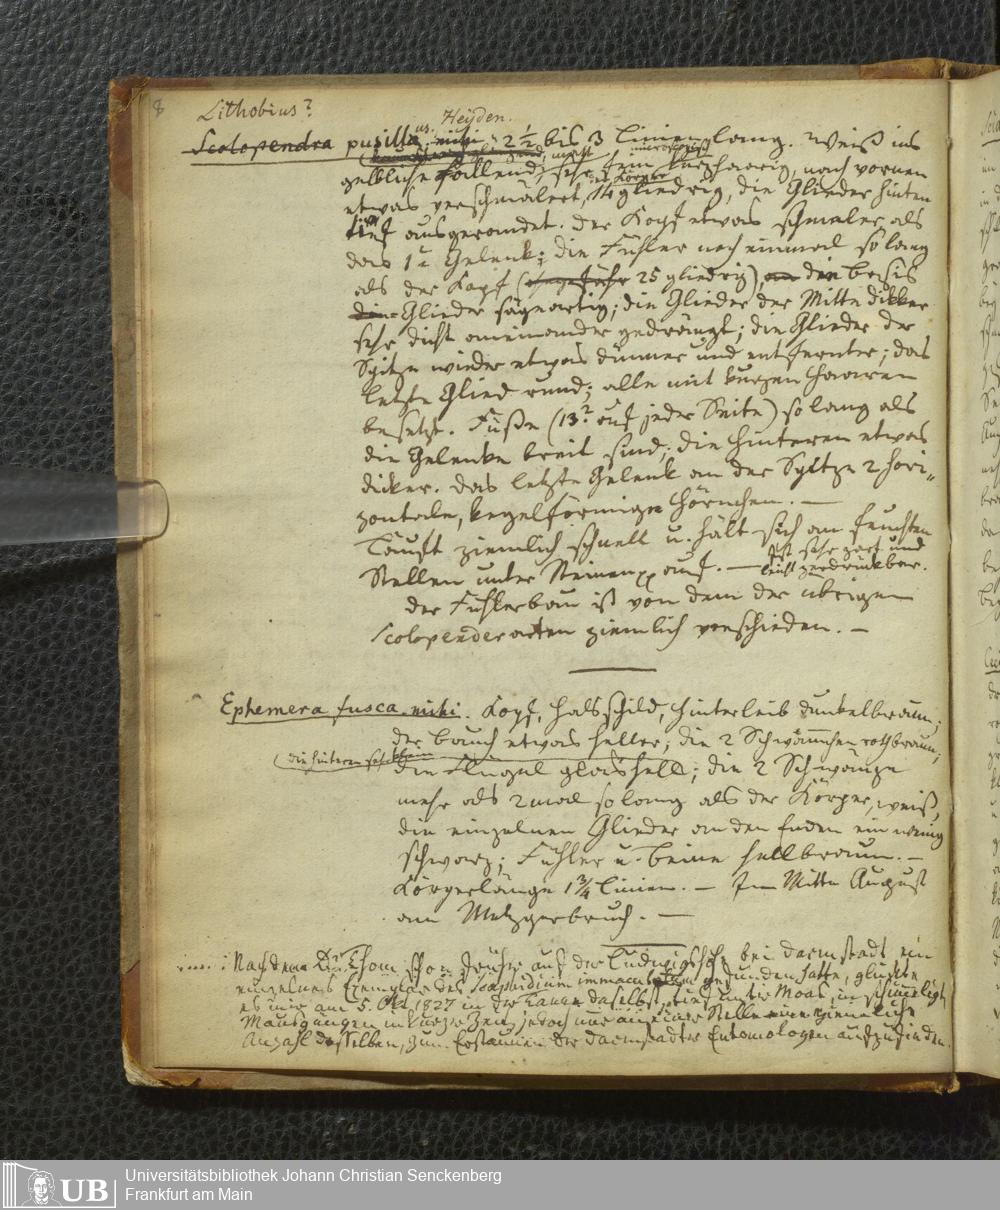 8
Lithobius?
Heyden.
Scolopendra pusilla mihi 2½ bis 3 Linien lang. Weiß ins
gelbliche fallend, sehr fein kurzhaarig, nach vornen
etwas verschmälert, 14 gliedrig, die Glieder hinten
tief ausgerandet. Der Kopf etwas schmaler als
das 1te Gelenk; die Fühler noch einmal so lang
als der Kopf (ungefähr 25 gliedrig), die basis
Glieder sägeartig; die Glieder der Mitte dikker
sehr dicht aneinander gedrängt; die Glieder der
Spitze wieder etwas dünner und entfernter; das
letzte Glied rund; alle mit kurzen Haaren
besetzt. Füße (13? auf jeder Seite) so lang als
die Gelenke breit sind; die hinteren etwas
dicker. Das letzte Gelenk an der Spitze 2 hori-
zontale, kegelförmige Hörnchen. —
Läuft ziemlich schnell u. hält sich an feuchten
Stellen unter Steinen auf. — Ist sehr zart und
leicht zerdrückbar.
Der Fühlerbau ist von dem der übrigen
Scolopenderarten ziemlich verschieden. —
Ephemera fusca mihi. Kopf, Halsschild, Hinterleib dunkelbraun;
der Bauch etwas heller; die 2 rothbraun;
die hinteren
die Flügel glashell; die 2 Schwänze
mehr als 2 mal so lang als der Körper, weiß,
die einzelnen Glieder an den Enden ein wenig
schwarz; Fühler u. Beine hellbraun. —
Körperlänge 1¾ Linien. — Im Mitte August
am Metzgerbruch. —
Nachdem Dr. Thom schon früher auf der Ludwigshöhe bei Darmstadt ein
einzelnes Exemplar des Scaphidium immaculatum gefunden hatte, glückte
es mir am 5. Okt. 1827 in der Tanne daselbst, tief unter Moos, in
Mausgängen in kurzer Zeit, jedoch nur an einer Stelle eine ziemliche
Anzahl desselben, zum Erstaunen der Darmstädter Entomologen aufzufinden.
Universitätsbibliothek Johann Christian Senckenberg
Frankfurt am Main
UB